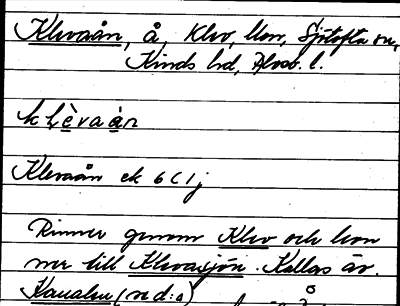 Klevaån, å, Klev, Uon, Sjötofta sn,
Kinds hd, Älvsb. l.
klèvaàn
Klevaån ek 6 C 1 j
Rinner genom Klev och Uon
ner till Klevasjön. Kallas äv.
Kanalen (nd:o)